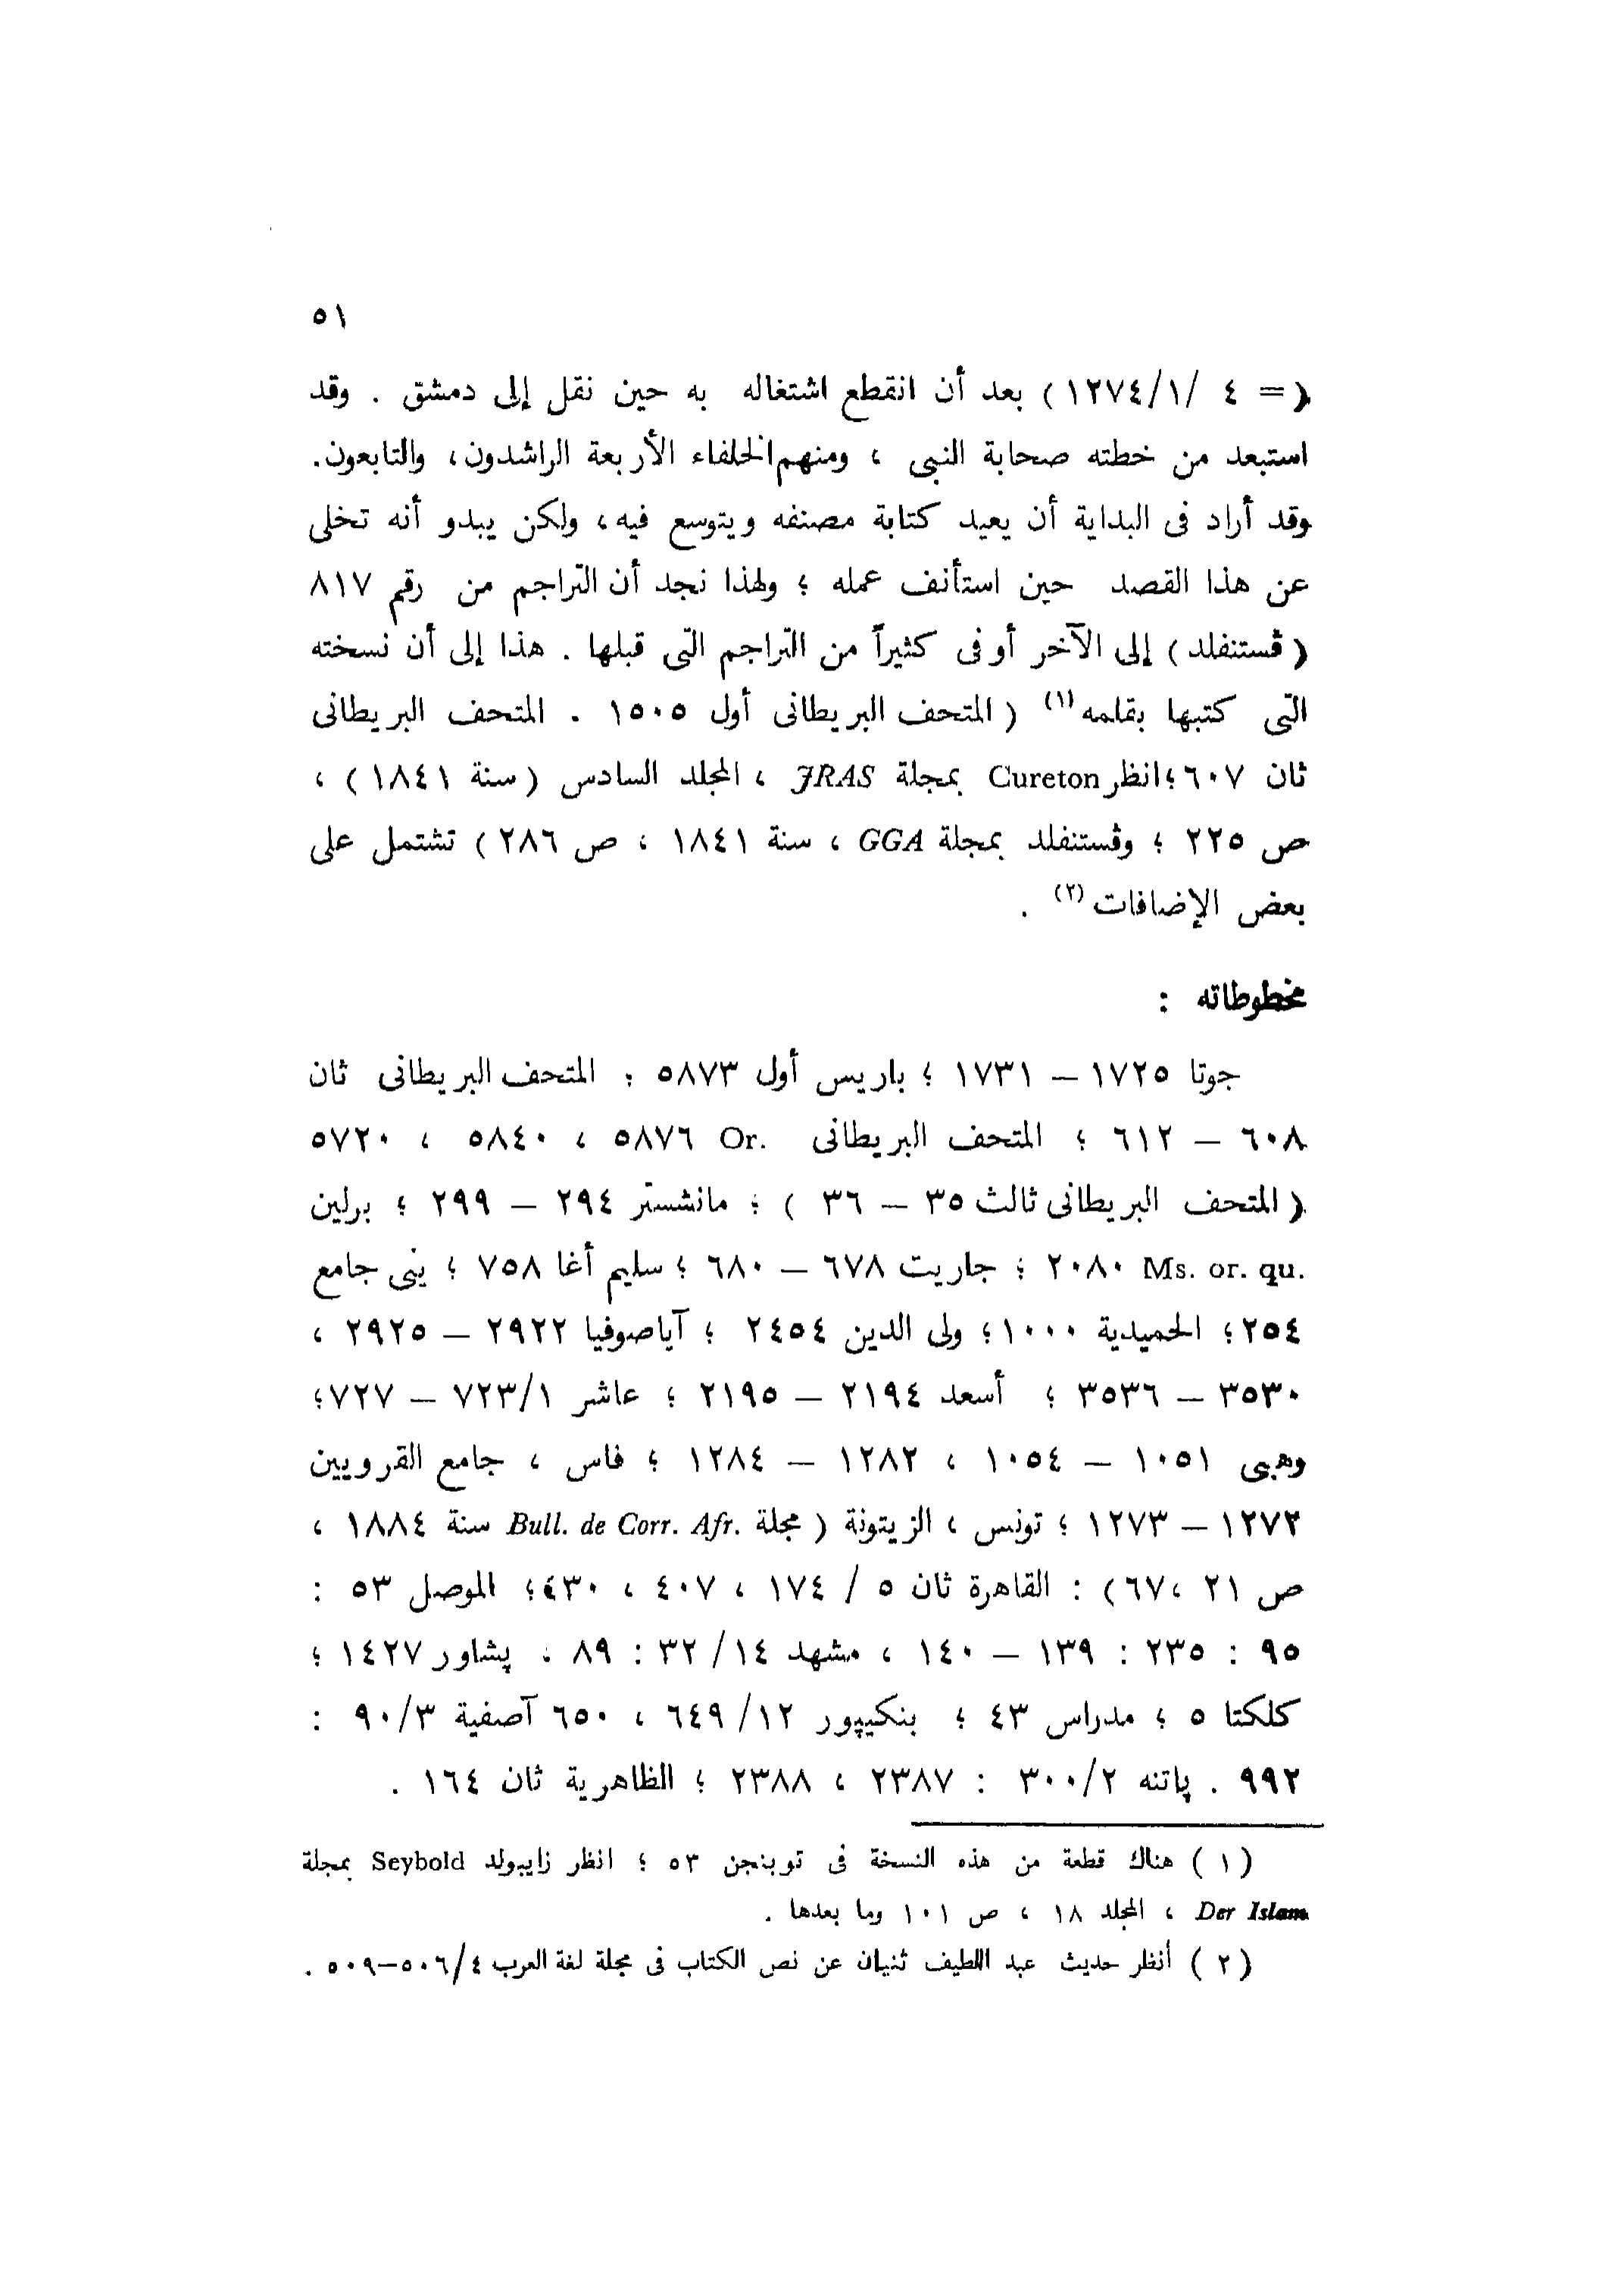 ٥١
( = ٤ /١٢٧٤/١ ) بعد أن انقطع اشتغاله به حين نقل إلى دمشق . وقد
استبعد من خطته صحابة النبى ، ومنهم الخلفاء الأربعة الراشدون، والتابعون.
وقد أراد فى البداية أن يعيد كتابة مصنفه ويتوسع فيه، ولكن يبدو أنه تخلى
عن هذا القصد حين استأنف عمله ؛ ولهذا نجد أن التراجم من رقم ٨١٧
( ڤستنفلد ) إلى الآخر أوفى كثيراً من التراجم التى قبلها . هذا إلى أن نسخته
التى كتبها بقلمه (١) ( المتحف البريطانى أول ١٥٠٥ . المتحف البريطانى
ثان ٦٠٧ ؛ انظر Cureton بمجلة JRAS ، المجلد السادس ( سنة ١٨٤١ ) ،
ص ٢٢٥ ؛ وڤستنفلد بمجلة GGA ، سنة ١٨٤١ ، ص ٢٨٦ ) تشتمل على
بعض الإضافات (٢) .
مخطوطاته :
جوتا ١٧٢٥ – ١٧٣١ ؛ باريس أول ٥٨٧٣ ؛ المتحف البريطانى ثان
٦٠٨ – ٦١٢ ؛ المتحف البريطانى Or. ٥٨٧٦ ، ٥٨٤٠ ، ٥٧٢٠
( المتحف البريطانى ثالث ٣٥ – ٣٦ ) ؛ مانشستر ٢٩٤ – ٢٩٩ ؛ برلين
Ms. or. qu. ٢٠٨٠ ؛ جاريت ٦٧٨ – ٦٨٠ ؛ سليم أغا ٧٥٨ ؛ ينى جامع
٢٥٤ ؛ الحميدية ١٠٠٠ ؛ ولى الدين ٢٤٥٤ ؛ آياصوفيا ٢٩٢٢ – ٢٩٢٥ ،
٣٥٣٠ – ٣٥٣٦ ؛ أسعد ٢١٩٤ – ٢١٩٥ ؛ عاشر ٧٢٣/١ – ٧٢٧ ؛
وهبى ١٠٥١ – ١٠٥٤ ، ١٢٨٢ – ١٢٨٤ ؛ فاس ، جامع القرويين
١٢٧٢ – ١٢٧٣ ؛ تونس ، الزيتونة ( مجلة Bull. de Corr. Afr. سنة ١٨٨٤ ،
ص ٢١ ، ٦٧ ) : القاهرة ثان ٥ / ١٧٤ ، ٤٠٧ ، ٤٣٠ ؛ الموصل ٥٣ :
٩٥ : ٢٣٥ : ١٣٩ – ١٤٠ ، مشهد ١٤ / ٣٢ : ٨٩ ، پشاور ١٤٢٧ ؛
كلكتا ٥ ؛ مدراس ٤٣ ؛ بنكيپور ١٢ / ٦٤٩ ، ٦٥٠ آصفية ٩٠/٣ :
٩٩٢ . پاتنه ٣٠٠/٢ : ٢٣٨٧ ، ٢٣٨٨ ؛ الظاهرية ثان ١٦٤ .
( ١ ) هناك قطعة من هذه النسخة فى توبنجن ٥٣ ؛ انظر زايبولد Seybold بمجلة
Der Islam ، المجلد ١٨ ، ص ١٠١ وما بعدها .
( ٢ ) أنظر حديث عبد اللطيف ثنيان عن نص الكتاب فى مجلة لغة العرب ٥٠٦/٤–٥٠٩ .